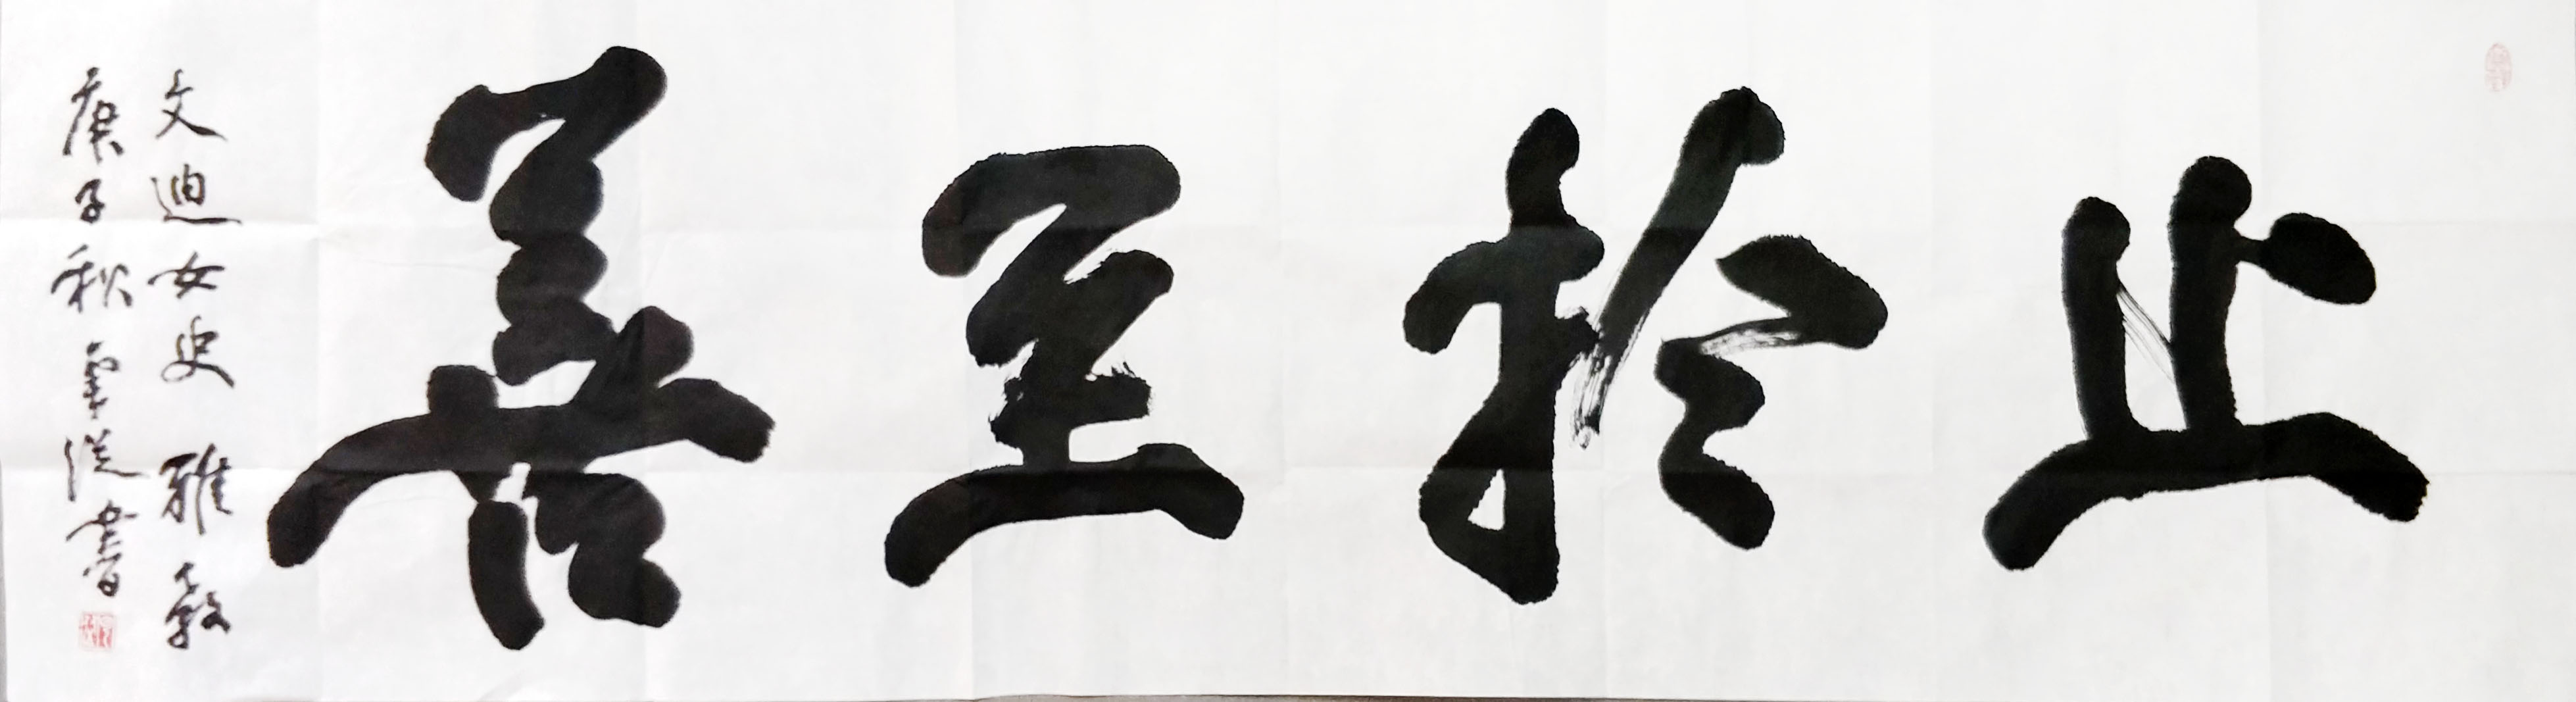 止於至善
文迪女史雅教
庚子秋
書